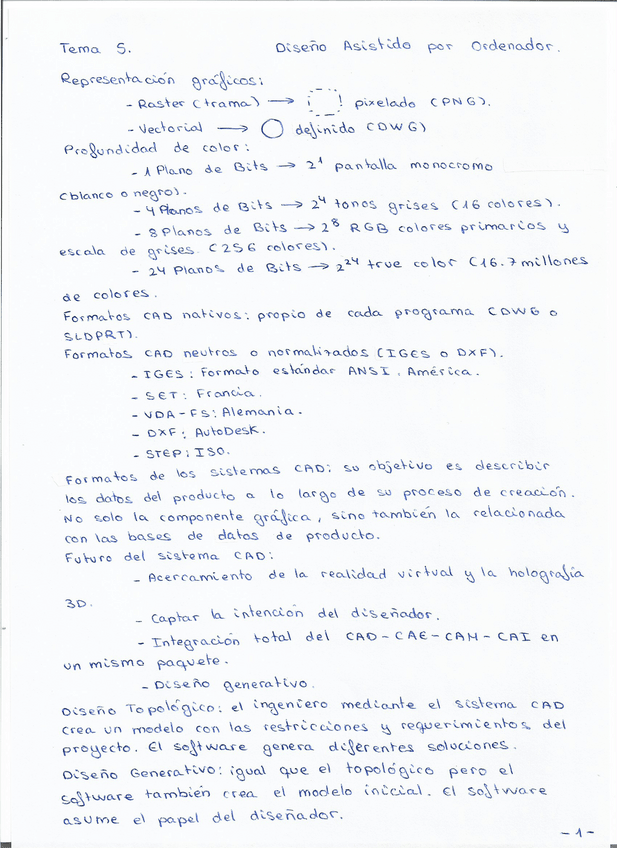 Tema 5. Diseño Asistido por Ordenador.
Representación gráficos:
- Raster (trama) → pixelado (PNG).
- Vectorial → definido (DWG)
Profundidad de color:
- 1 Plano de Bits → 2¹ pantalla monocromo
(blanco o negro).
- 4 Planos de Bits → 2⁴ tonos grises (16 colores).
- 8 Planos de Bits → 2⁸ RGB colores primarios y
escala de grises. (256 colores).
- 24 Planos de Bits → 2²⁴ true color (16.7 millones
de colores.
Formatos CAD nativos: propio de cada programa (DWG o
SLDPRT).
Formatos CAD neutros o normalizados (IGES o DXF).
- IGES: Formato estándar ANSI. América.
- SET: Francia.
- VDA-FS: Alemania.
- DXF: AutoDesk.
- STEP: ISO.
Formatos de los sistemas CAD: su objetivo es describir
los datos del producto a lo largo de su proceso de creación.
No solo la componente gráfica, sino también la relacionada
con las bases de datos de producto.
Futuro del sistema CAD:
- Acercamiento de la realidad virtual y la holografía
3D.
- Captar la intención del diseñador.
- Integración total del CAD-CAE-CAM-CAI en
un mismo paquete.
- Diseño generativo.
Diseño Topológico: el ingeniero mediante el sistema CAD
crea un modelo con las restricciones y requerimientos del
proyecto. El software genera diferentes soluciones.
Diseño Generativo: igual que el topológico pero el
software también crea el modelo inicial. El software
asume el papel del diseñador.
-1-